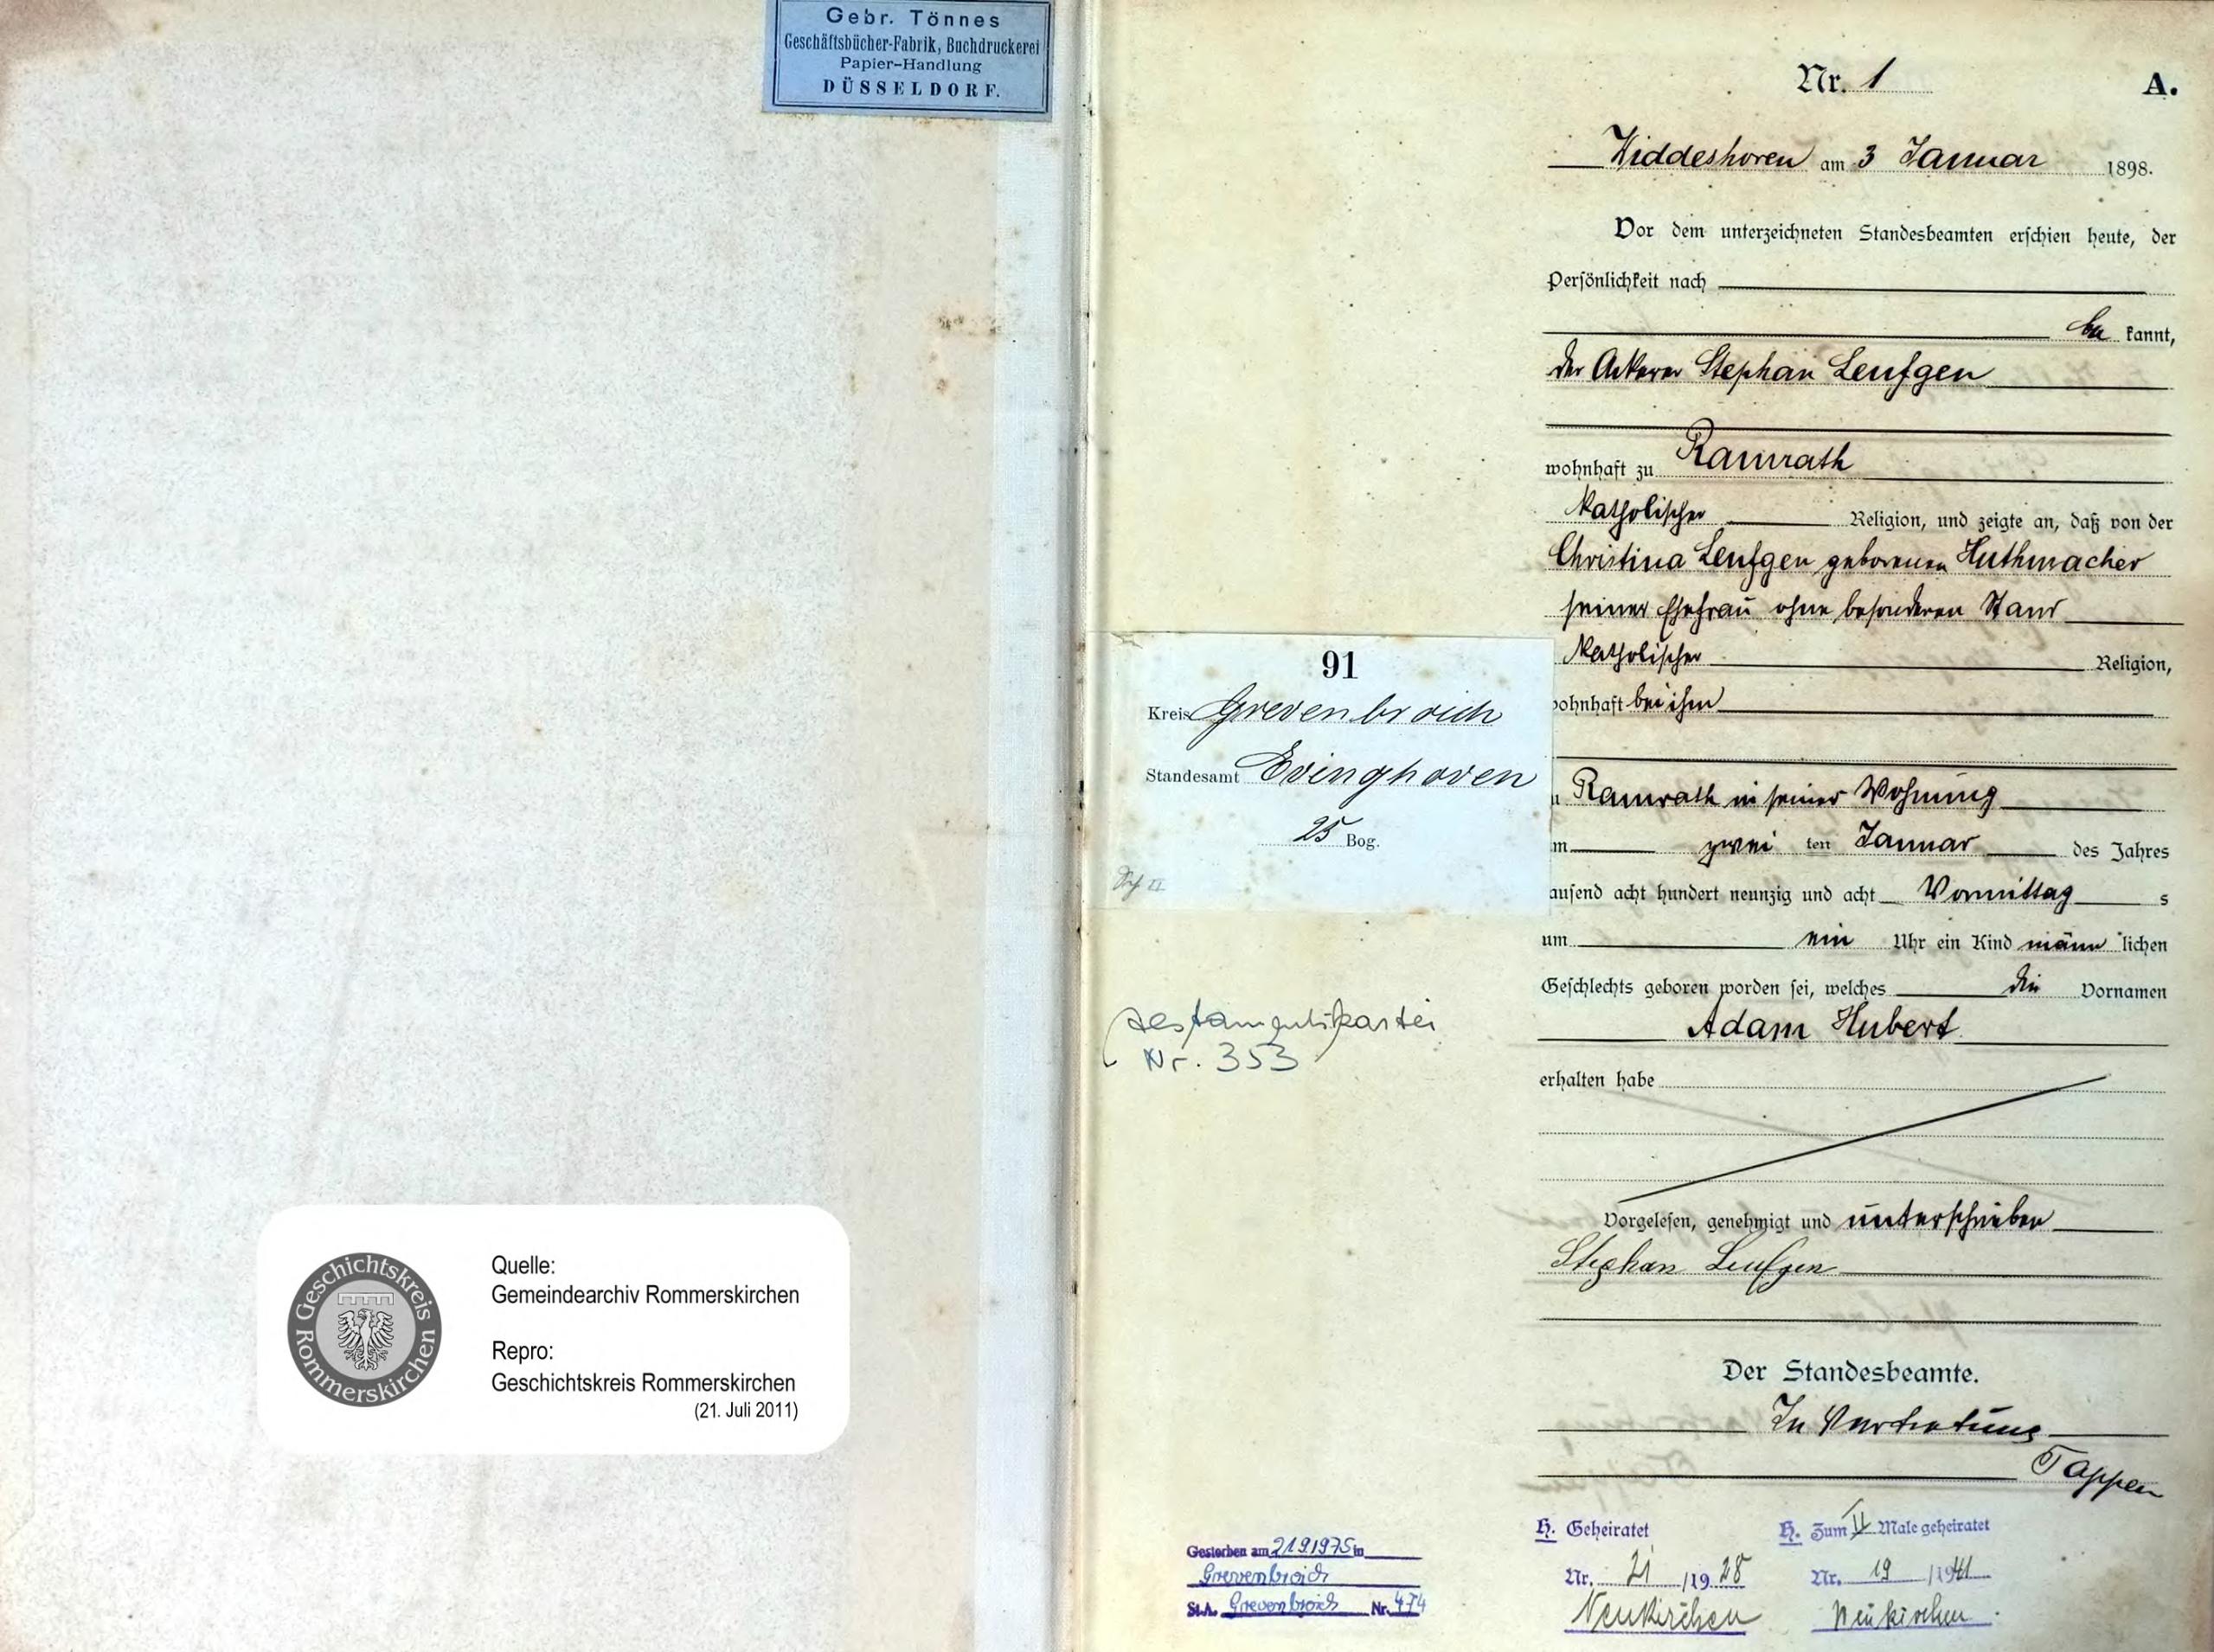 Gebr. Tönnes
Geschäftsbücher-Fabrik, Buchdruckerei
Papier-Handlung
DÜSSELDORF.
Geschichtskreis Rommerskirchen
Quelle:
Gemeindearchiv Rommerskirchen
Repro:
Geschichtskreis Rommerskirchen
(21. Juli 2011)
91
Kreis Grevenbroich
Standesamt Evinghoven
25 Bog.
Testamentskartei
Nr. 353
Nr. 1
A.
Widdeshoven am 3 Januar 1898.
Vor dem unterzeichneten Standesbeamten erschien heute, der
Persönlichkeit nach
be kannt,
der Ackerer Stephan Leufgen
wohnhaft zu Ramrath
katholischer Religion, und zeigte an, daß von der
Christina Leufgen geborenen Huthmacher
seiner Ehefrau ohne besonderen Stand
katholischer Religion,
wohnhaft bei ihm
u Ramrath in seiner Wohnung
m zwei ten Januar des Jahres
ausend acht hundert neunzig und acht Vormittag s
um ein Uhr ein Kind männ lichen
Geschlechts geboren worden sei, welches die Vornamen
Adam Hubert
erhalten habe
Vorgelesen, genehmigt und unterschrieben
Stephan Leufgen
Der Standesbeamte.
In Vertretung
Tappen
Gestorben am 21.9.1975 in
Grevenbroich
St.A. Grevenbroich Nr. 474
H. Geheiratet
Nr. 21 /19 28
Neukirchen
H. Zum II Male geheiratet
Nr. 19 /1941
Neukirchen